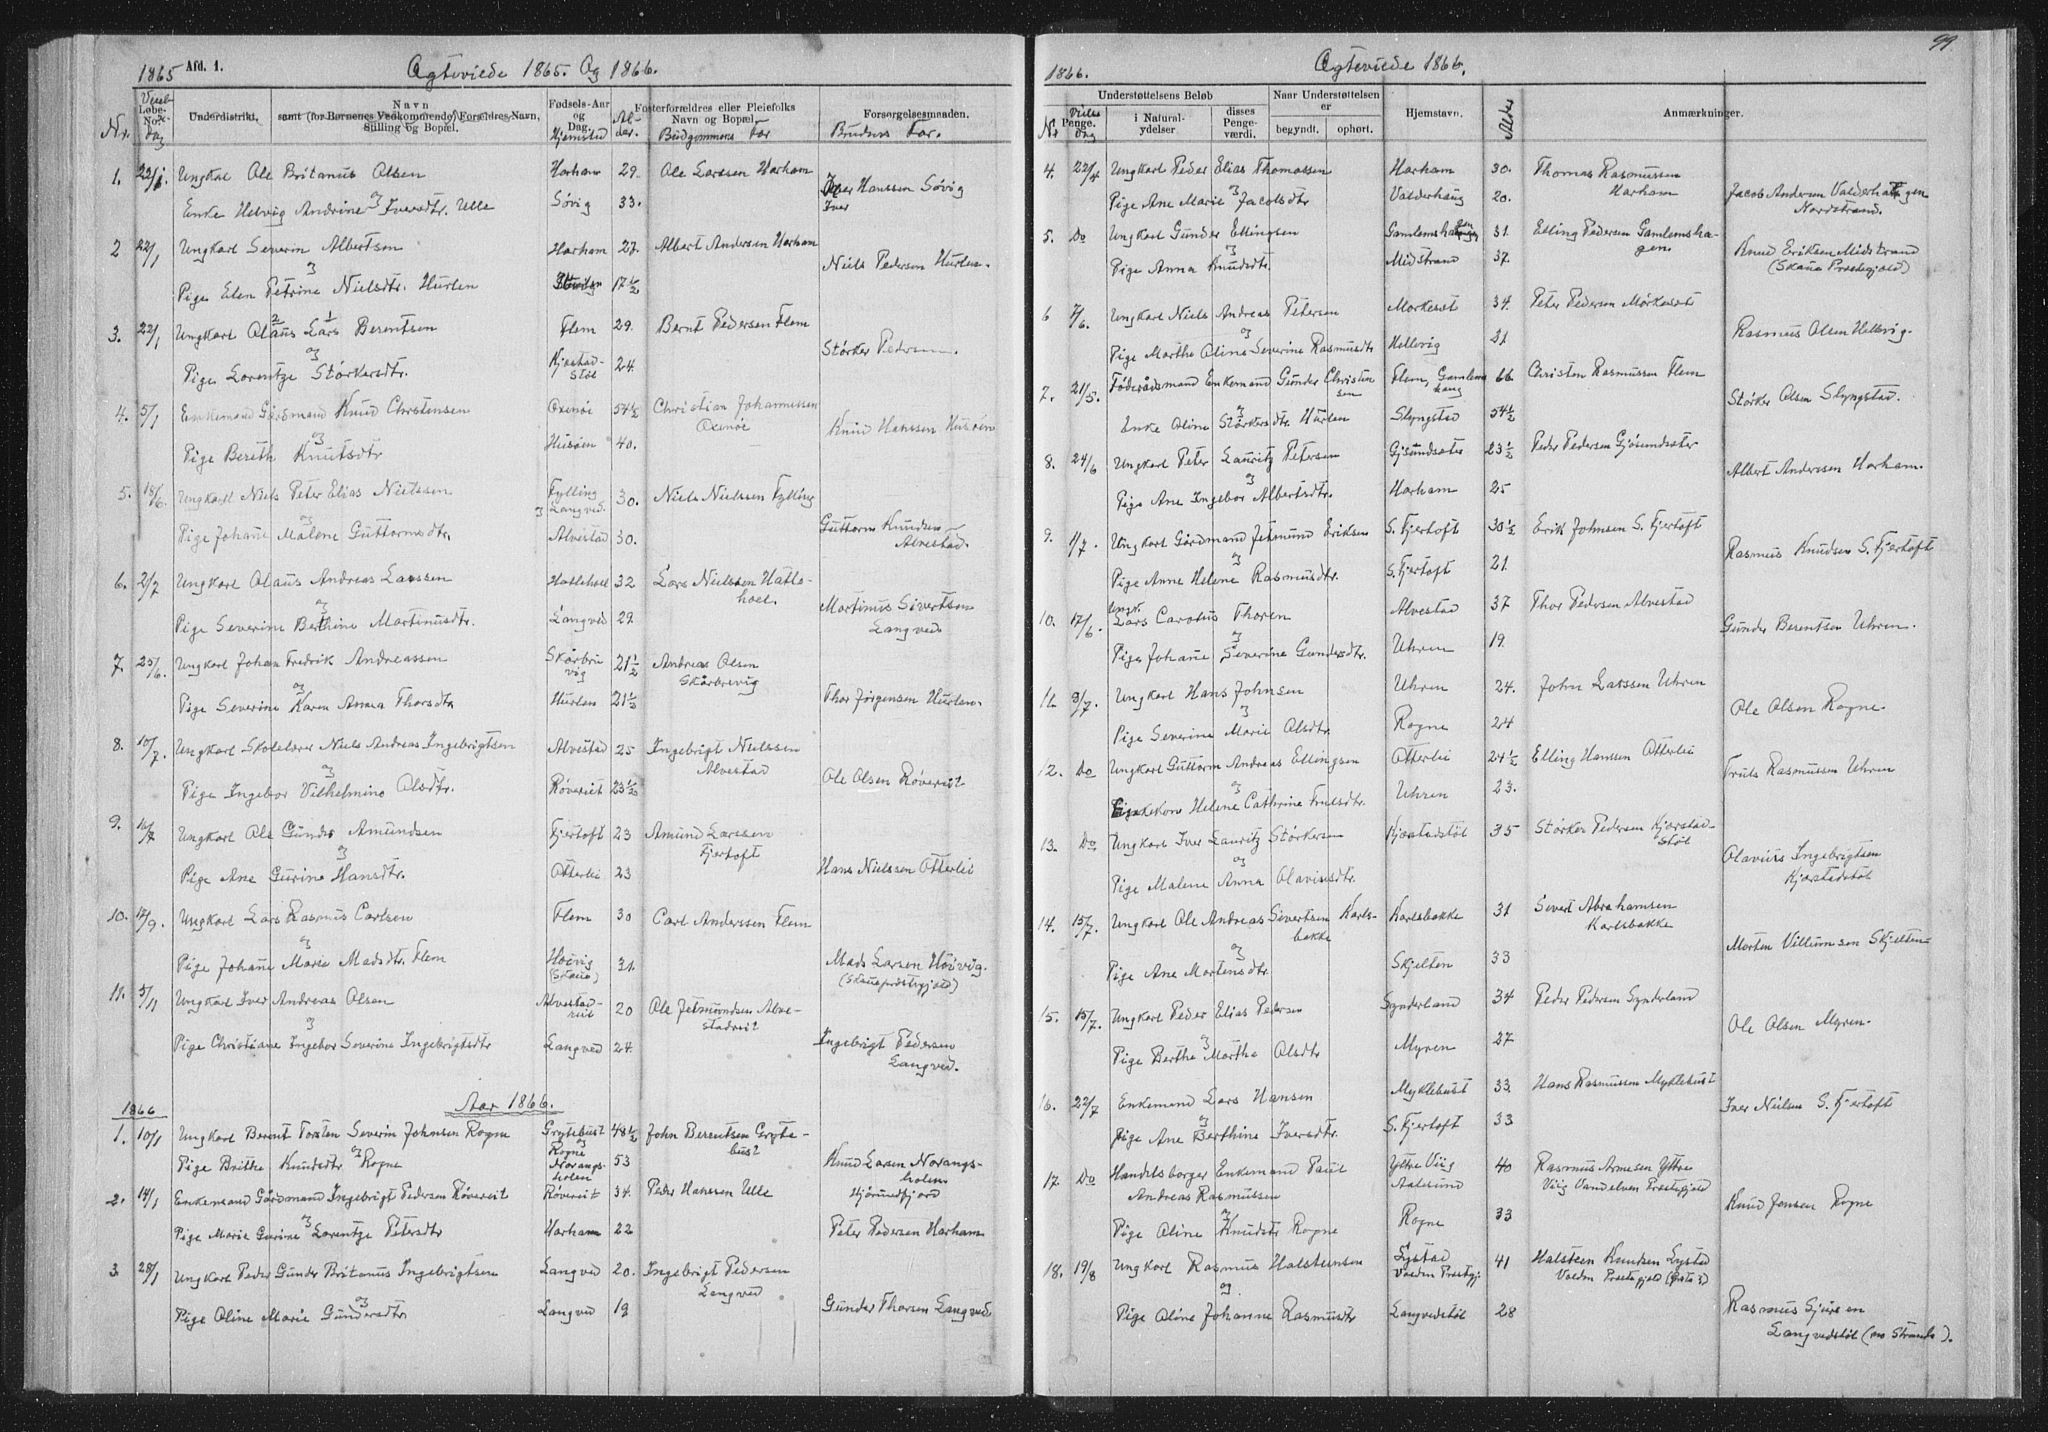 1865 Afd. 1. Ægteviede 1865. Og 1866.
Nr. Løbe-No. Vielsdag Underdistrikt, Navn samt (for Børnenes Vedkommende) Forældres Navn, Stilling og Bopæl. Fødsels-Aar og Dag. Hjemsted Alder. Fosterforældres eller Pleiefolks Navn og Bopæl. Brudgommens Far Forsørgelsesmaaden. Brudens Far.
1. 22/1. Ungkal Ole Britanus Olsen Harham 29. Ole Larssen Harham
og
Enke Helvig Andrine Iversdtr. Ulle Søvig 33. Iver Hanssen Søvig
Iver
2 22/1 Ungkarl Severin Albertsen Harham 27. Albert Andersen Harham
og
Pige Elen Petrine Nielsdtr. Hurlen 17½ Niels Pedersen Hurlen.
3. 22/1 Ungkarl Olaus Lars Berentsen Flem 29. Bernt Pedersen Flem
og
Pige Lorentze Størkersdtr. Kjerstad-
støl 24 Størker Pedersen.
4. 5/1 Enkemand Gårdmand Knud Christensen Oxenøi 54½ Christian Johannessen
Oxenøi
og
Pige Bereth Knutsdtr Husøen 40. Knud Hanssen Husøen
5. 18/6. Ungkarl Niels Peter Elias Nielssen Fylling
Langved. 30. Niels Nielssen Fylling
og
Pige Johane Malene Guttormsdtr. Alvestad 30. Guttorm Knudsen
Alvestad.
6. 2/7 Ungkarl Olaus Andreas Larssen Hatlehoel 32 Lars Nielssen Hatle-
hoel.
og
Pige Severine Berthine Martinusdtr. Langved 29. Martinus Sivertsen
Langved
7. 25/6. Ungkarl Johan Fredrik Andreassen Skårbre
vig 21½ Andreas Olsen
Skårbrevig
og
Pige Severine Karen Anna Thorsdtr Hurlen 21½ Thor Jørgensen Hurlen.
8. 10/7. Ungkarl Skolelærer Niels Andreas Ingebrigtsen Alvestad 25 Ingebrigt Nielssen
Alvestad
og
Pige Ingebor Vilhelmine Olsdtr. Røvereit 23½ Ole Olsen Røvereit
9. Ungkarl Ole Gunder Amundsen Fjertoft 23 Amund Larssen
Fjertoft
og
Pige Ane Gurine Hansdtr. Otterlei 23 Hans Nielssen Otterlei
10. Ungkarl Lars Rasmus Carlsen Flem 30 Carl Anderssen Flem
og
Pige Johane Marie Madsdtr. Flem Høivig
(Skaue) 31. Mads Larsen Høivig.
(Skaueprestegjeld)
11. 5/11 Ungkarl Iver Andreas Olsen Alvestad-
reit 20 Ole Jetmundsen Alve-
stadreit
og
Pige Christiane Ingebor Severine Ingebrigtsdtr Langved 24. Ingebrigt Pedersen
Langved.
1866 Aar 1866.
1. 10/1 Ungkarl Bernt Torsten Severin Johnsen Rogne Grytebust
Rogne 48½ John Berentsen Gryte-
bust
og
Pige Brithe Knudsdtr Rogne Norangs-
holen 53 Knud Larsen Norangs-
holen
Hjørundfjord
2. 14/1 Enkemand Gårdmand Ingebrigt Pedersen Røvereit Røvereit 34. Peder Hanssen Ulle
og
Pige Marie Gurine Lorentze Petersdtr Harham 22 Peter Pedersen Harham
3. 28/1 Ungkarl Peder Gunder Britanus Ingebrigtsen Langved 20. Ingebrigt Pedersen
Langved
og
Pige Oline Marie Gundersdtr Langved 19 Gunder Thorsen Langved
99
1866. Ægteviede 1866.
Nr Vielsdag Understøttelsens Beløb Penge. i Natural-ydelser disses Penge-værdi. Naar Understøttelsen er begyndt. ophørt. Hjemstavn. Alder Anmærkninger.
4. 22/4 Ungkarl Peder Elias Thomassen Harham 30. Thomas Rasmussen
Harham
og
Pige Ane Marie Jacobsdtr Valderhaug 20. Jacob Andersen Valderhaugen
Nordstrand.
5. Do Ungkarl Gunder Ellingsen 31 Elling Pedersen Gamlemsha-
gen.
og
Pige Anna Knudsdtr. Midstrand 37. Knud Eriksen Midstrand
(Skaue Prestegjeld)
6 7/6. Ungkarl Niels Andreas Petersen Morkeset 34. Peter Pedersen Morkeset
og
Pige Marthe Oline Severine Rasmusdtr Hellevig 21 Rasmus Olsen Hellevig.
7. 21/5. Føderådsmand Enkemand Gunder Christen
sen Flem, Gamlems
haug 66 Christen Rasmussen Flem
og
Enke Oline Størkersdtr. Hurlen Slyngstad 54½ Størker Olsen Slyngstad.
8. 24/6 Ungkarl Peter Lauritz Petersen Gjøsundsæter 23½ Peder Pedersen Gjøsundsæter
og
Pige Ane Ingebor Albertsdtr. Harham 25 Albert Andersen Harham.
9. 1/7. Ungkarl Gårdmand Jetmund Eriksen S. Fjertoft 30½ Erik Johnsen S. Fjertoft
og
Pige Anne Helene Rasmusdtr. S. Fjertoft 21. Rasmus Knudsen S. Fjertoft
10. 17/6. Ungk.
Lars Carolus Thoren Alvestad 37 Thor Pedersen Alvestad
og
Pige Johane Severine Gundersdtr. Uhren 19. Gunder Berentsen Uhren.
11. 8/7. Ungkarl Hans Johnsen Uhren 24. John Larssen Uhren
og
Pige Severine Marie Olsdtr. Rogne 24 Ole Olsen Rogne.
12. Do Ungkarl Guttorm Andreas Ellingsen Otterlei 24½ Elling Hanssen Otterlei
og
Helene Cathrine Trulsdtr. Uhren 23. Truls Rasmussen Uhren
13. Do Ungkarl Iver Lauritz Størkersen Kjerstadstøl 35 Størker Pedersen Kjerstad-
støl
og
Pige Malene Anna Olavisdtr. Olavius Ingebrigtsen
Kjerstadstøl
14. 15/7. Ungkarl Ole Andreas Sivertsen Karls-
bakke Karlsbakke 31 Sivert Abrahamsen
Karlsbakke
og
Pige Ane Mortensdtr. Skjelten 33 Morten Villumsen Skjelten
15. 15/7. Ungkarl Peder Elias Pedersen Synderland 34 Peder Pedersen Synderland
og
Pige Berthe Marthe Olsdtr Myren 27 Ole Olsen Myren.
16. 22/7 Enkemand Lars Hansen Myklebust 33. Hans Rasmussen Myklebust
og
Pige Ane Berthine Iversdtr. S. Fjertoft 33 Iver Nielsen S. Fjertoft
17. Do Handelsborger Enkemand Paul
Andreas Rasmussen Yttre Viig
Aalesund 40 Rasmus Arnesen Yttre
Viig Vandelven Prestegjeld
og
Pige Oline Knudstr Rogne Rogne 33 Knud Jensen Rogne
18. 19/8 Ungkarl Rasmus Halsteensen Lystad
Voldens Prestgj. 41 Halsteen Knudsen Lystad
Volden Prestegjeld
og
Pige Oline Johanne Rasmusdtr Langvedstøl 28 Rasmus Sjursen
Langvedstøl